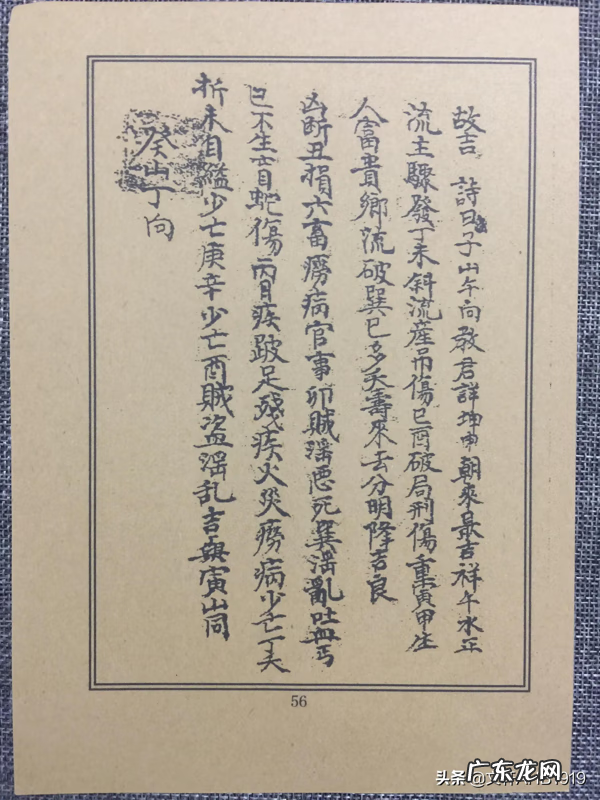 故吉 詩曰子山午向教君詳坤申朝來最吉祥午水正
流主驟發丁未斜流產吊傷巳酉破局刑傷重寅甲生
人富貴鄉流破巽巳多夭壽來去分明降吉良
凶断丑損六畜癆病官事卯賊淫悪死巽淫亂吐血丐
巳不生育蛇傷丙目疾跛足残疾火災癆病少亡丁夭
折未自縊少亡庚辛少亡酉賊盗淫乱吉與寅山同
癸山丁向
56
头条
广东龙网